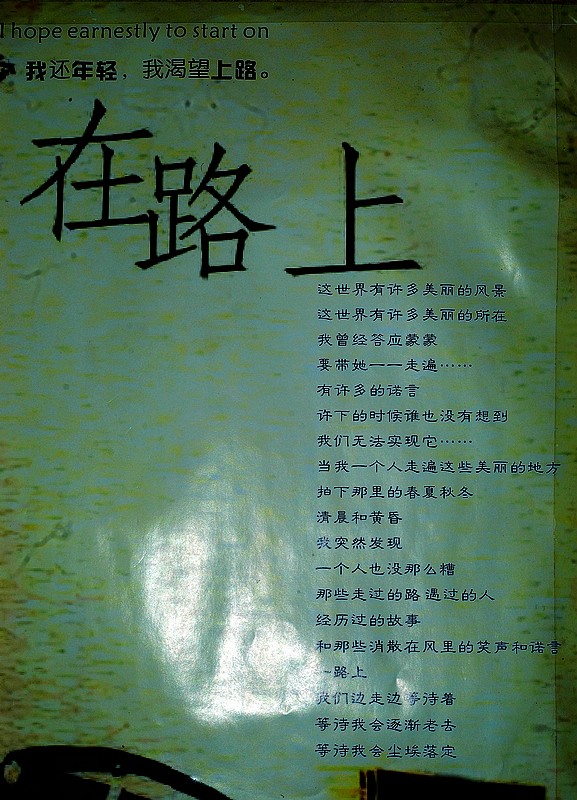 I hope earnestly to start on
我还年轻，我渴望上路。
在路上
这世界有许多美丽的风景
这世界有许多美丽的所在
我曾经答应蒙蒙
要带她一一走遍……
有许多的诺言
许下的时候谁也没有想到
我们无法实现它……
当我一个人走遍这些美丽的地方
拍下那里的春夏秋冬
清晨和黄昏
我突然发现
一个人也没那么糟
那些走过的路 遇过的人
经历过的故事
和那些消散在风里的笑声和诺言
一路上
我们边走边等待着
等待我会逐渐老去
等待我会尘埃落定